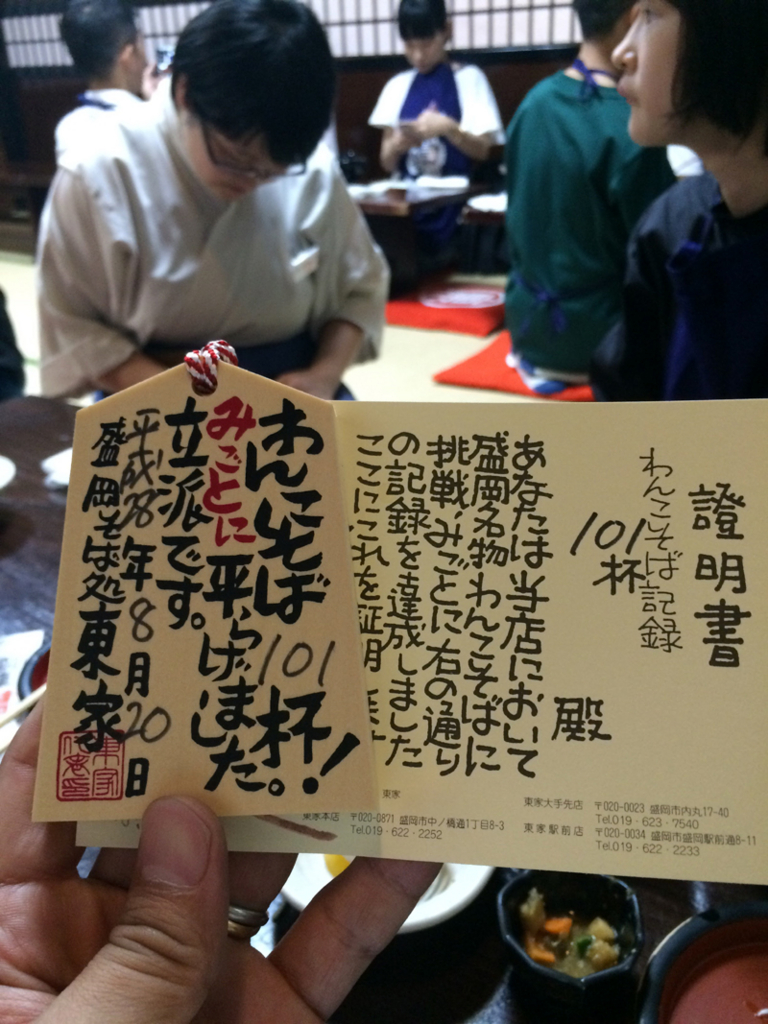 わんこそば101杯!
みごとに平らげました。
立派です。
平成28年8月20日
盛岡そば処東家
證明書
わんこそば記録
101杯
殿
あなたは当店において
盛岡名物わんこそばに
挑戦、みごとに右の通り
の記録を達成しました
ここにこれを証明します
東家
東家本店 〒020-0871 盛岡市中ノ橋通1丁目8-3
Tel.019・622・2252
東家大手先店 〒020-0023 盛岡市内丸17-40
Tel.019・623・7540
東家駅前店 〒020-0034 盛岡市盛岡駅前通8-11
Tel.019・622・2233